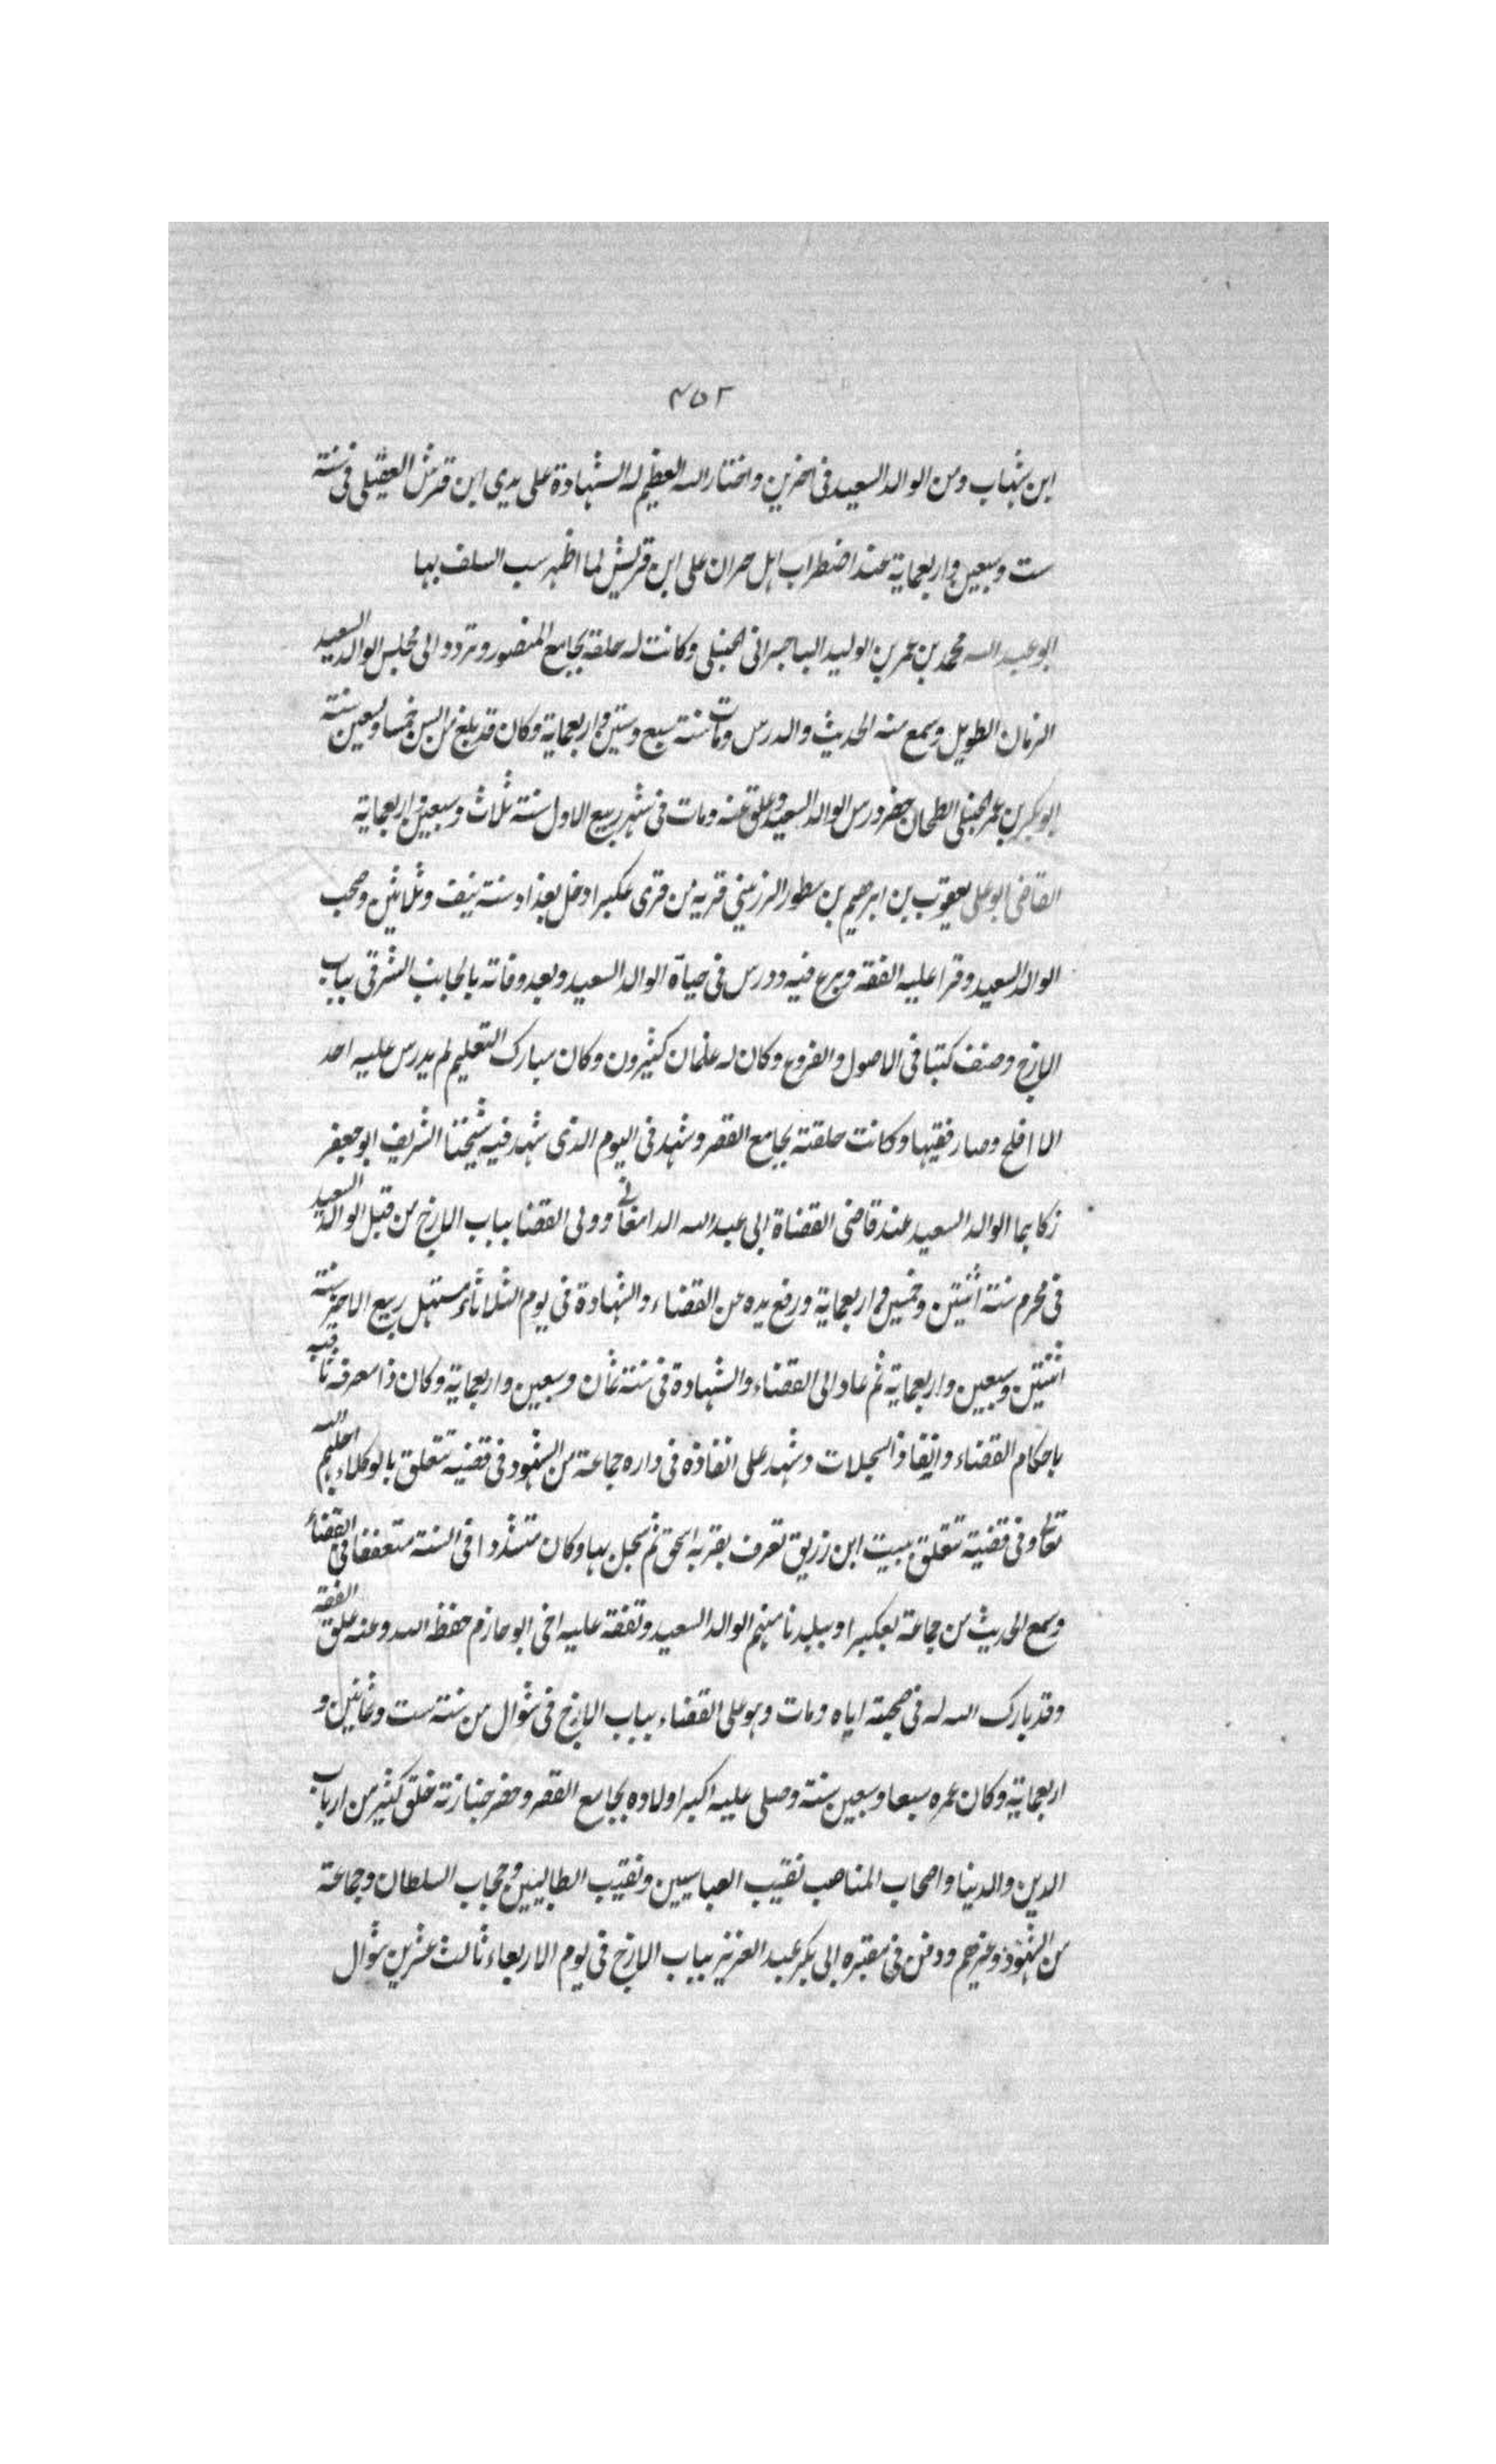 ٤٥٢
ابن شهاب ومن الوالد السعيد فى اخرين واختار الله العظيم له الشهادة على يدي ابن قريش العقيلى فى سنة
ست وسبعين واربعماية عند اضطراب اهل حران على ابن قريش لما اظهر سب السلف بها
ابو عبد الله محمد بن عمر بن الوليد الباجسرانى الحنبلى وكانت له حلقة بجامع المنصور وتردد الى مجلس الوالد السعيد
الزمان الطويل وسمع منه الحديث والدرس ومات سنة سبع وستين واربعماية وكان قد بلغ من السن خمسا وسعين سنة
ابو بكر بن عمر الحنبلى الطحان حضر درس الوالد السعيد وعلق عنه ومات فى شهر ربيع الاول سنة ثلاث وسبعين واربعماية
القاضى ابو على يعقوب بن ابرهيم بن سطور البرزبيني قرية من قرى عكبرا دخل بغداد سنة نيف وثلاثين وصحب
الوالد السعيد وقرا عليه الفقه وبرع فيه ودرس فى حياة الوالد السعيد وبعد وفاته بالجانب الشرقى بباب
البازج وصنف كتبا فى الاصول والفروع وكان له غلمان كثيرون وكان مبارك التعليم لم يدرس عليه احد
الا افلح وصار فقيها وكانت حلقته بجامع القصر وشهد فى اليوم الذى شهد فيه شيخنا الشريف ابو جعفر
زكا بما الوالد السعيد عند قاضى القضاة ابى عبد الله الدامغانى وولى القضا بباب البازج من قبل الوالد السعيد
فى محرم سنة اثنتين وخمسين واربعماية ورفع يده عن القضاء والشهادة فى يوم الثلاثاء مستهل ربيع الاخر سنة
اثنتين وسبعين واربعماية ثم عاد الى القضاء والشهادة فى سنة ثمان وسبعين واربعماية وكان ذا معرفة ثاقبة
باحكام القضاء وانفاذ السجلات وشهد على انفاذه فى داره جماعة من الشهود فى قضية تتعلق بالوكلاء اجلهم الله
تعالى وفى قضية تتعلق ببيت ابن زريق تعرف بقرية اسحق ثم سجل بها وكان متشددا فى السنة متعففا فى القضاء
وسمع الحديث من جماعة بعكبرا وببلدنا منهم الوالد السعيد وتفقه عليه اخى ابو حازم حفظه الله وعنه علق الفقه
وقد بارك الله له فى صحبته اياه ومات وهو على القضاء بباب البازج فى شوال من سنة ست وثمانين و
اربعماية وكان عمره سبعا وسبعين سنة وصلى عليه اكبر اولاده بجامع القصر وحضر جنازته خلق كثير من ارباب
الدين والدنيا واصحاب المناصب نقيب العباسيين ونقيب الطالبيين وحجاب السلطان وجماعة
من الشهود وغيرهم ودفن فى مقبرة ابى بكر عبد العزيز بباب البازج فى يوم الاربعاء ثالث عشرين شوال